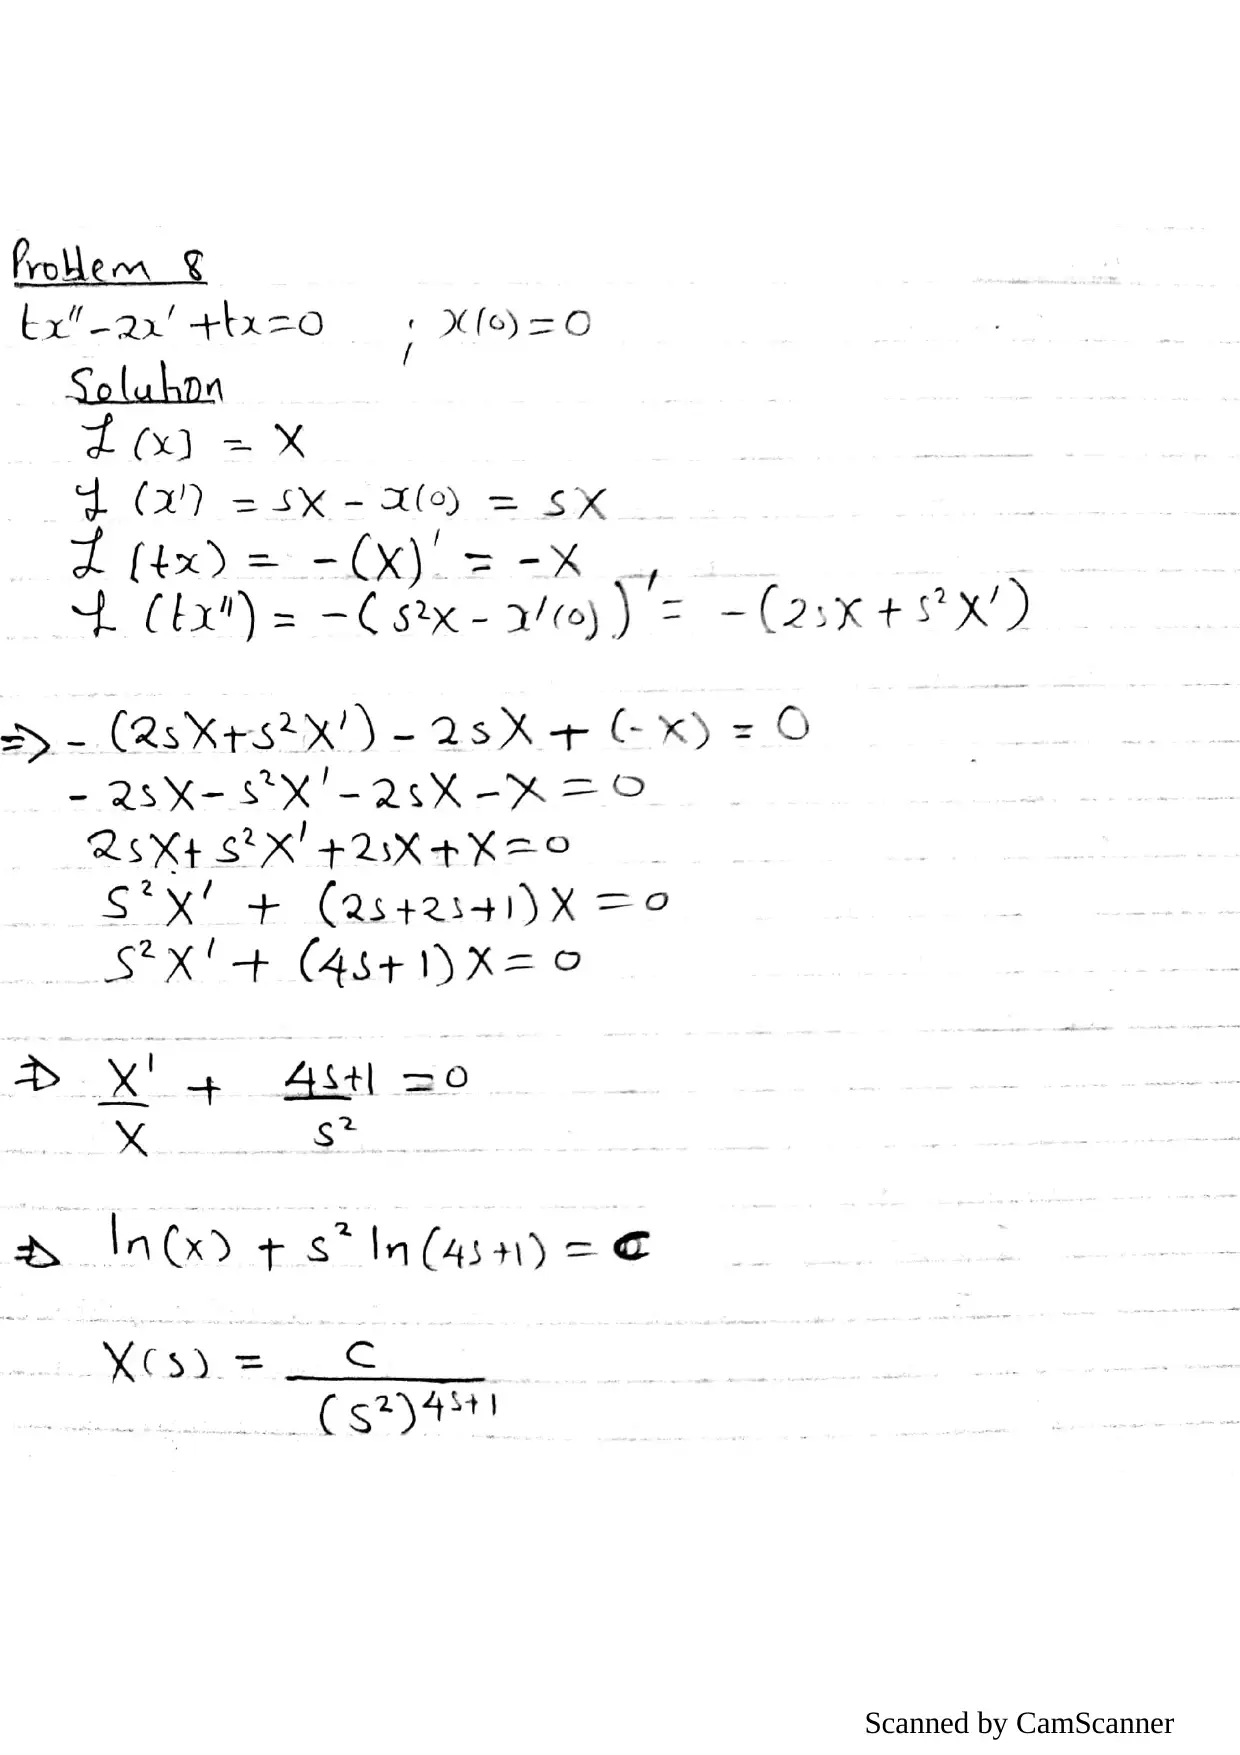 Problem 8
tx" - 2x' + tx = 0 ; x(0) = 0
Solution
ℒ(x] = X
ℒ(x') = sX - x(0) = sX
ℒ(tx) = -(X)' = -X
ℒ(tx") = -(s²X - x'(0))' = -(2sX + s²X')
⇒ -(2sX+s²X') - 2sX + (-X) = 0
- 2sX - s²X' - 2sX - X = 0
2sX + s²X' + 2sX + X = 0
s²X' + (2s+2s+1)X = 0
s²X' + (4s+1)X = 0
⇒ X'/X + 4s+1/s² = 0
⇒ ln(x) + s² ln(4s+1) = C
X(s) = C/(s²)^4s+1
Scanned by CamScanner